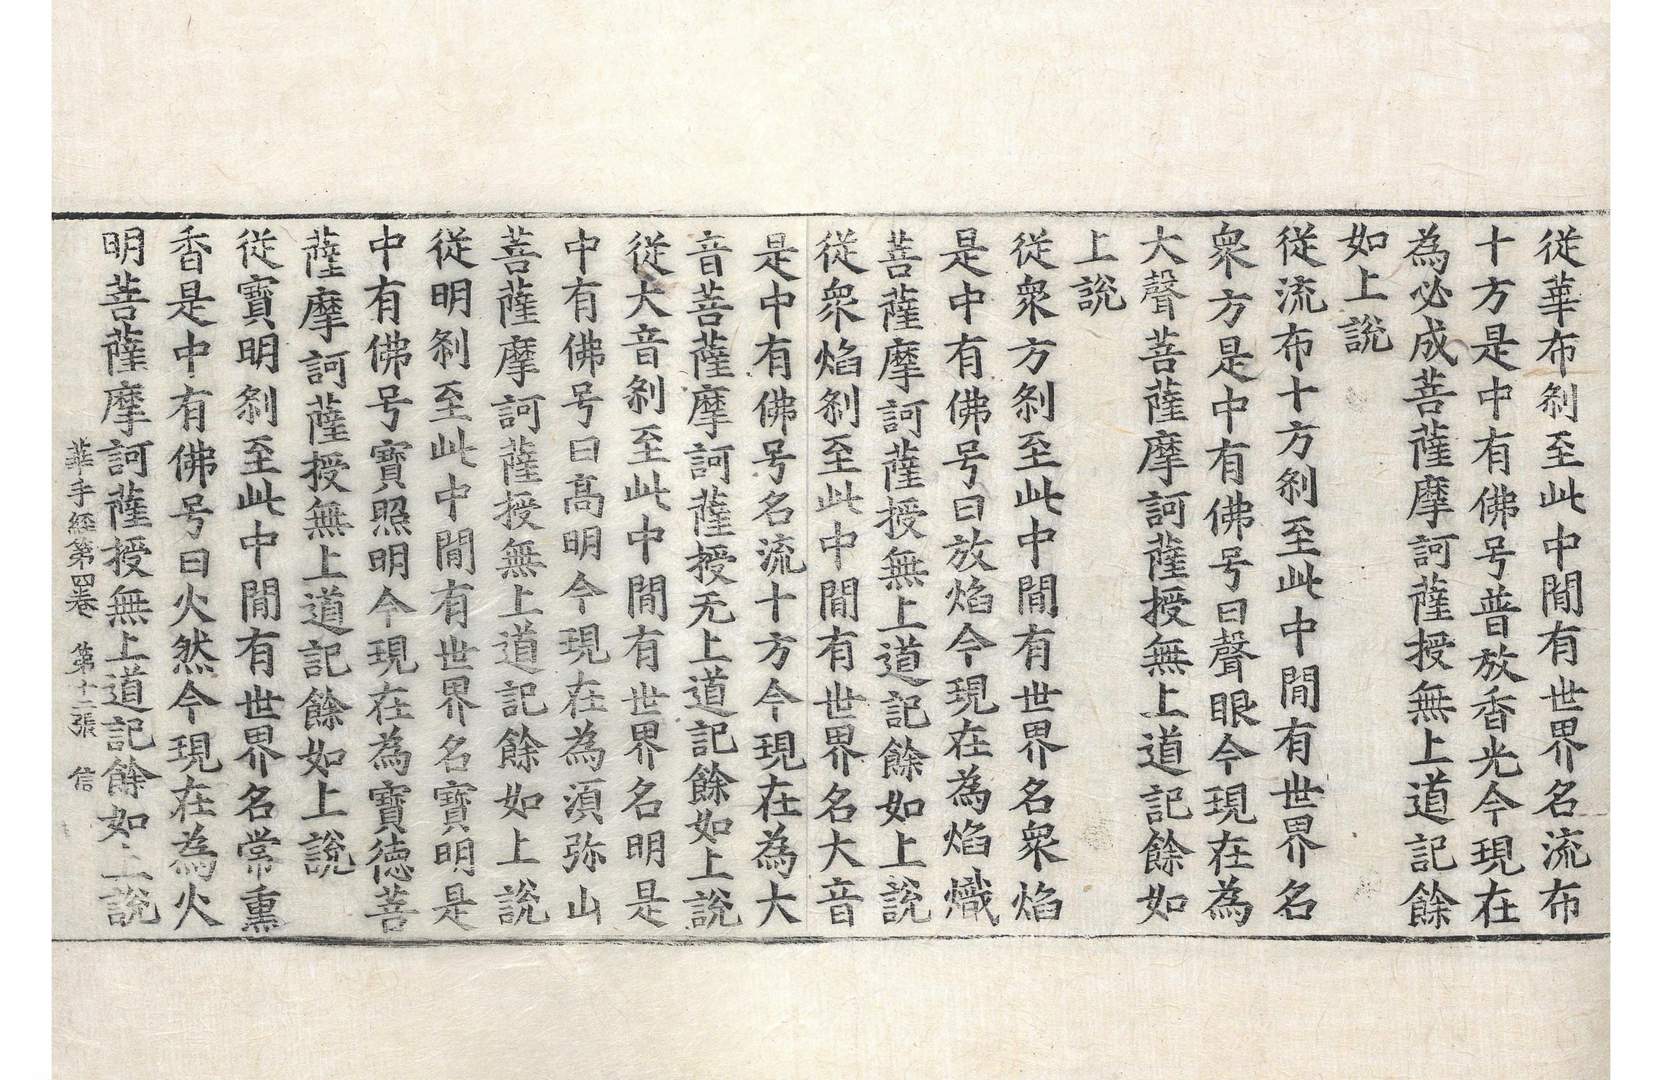 從華布剎至此中閒有世界名流布
十方是中有佛号普放香光今現在
為必成菩薩摩訶薩授無上道記餘
如上說
從流布十方剎至此中閒有世界名
衆方是中有佛号曰聲眼今現在為
大聲菩薩摩訶薩授無上道記餘如
上說
從衆方剎至此中閒有世界名衆焰
是中有佛号曰放焰今現在為焰熾
菩薩摩訶薩授無上道記餘如上說
從衆焰剎至此中閒有世界名大音
是中有佛号名流十方今現在為大
音菩薩摩訶薩授无上道記餘如上說
從大音剎至此中閒有世界名明是
中有佛号曰高明今現在為湏弥山
菩薩摩訶薩授無上道記餘如上說
從明剎至此中閒有世界名寶明是
中有佛号寶照明今現在為寶德菩
薩摩訶薩授無上道記餘如上說
從寶明剎至此中閒有世界名常熏
香是中有佛号曰火然今現在為火
明菩薩摩訶薩授無上道記餘如上說
華手經第四卷 第十二張 信